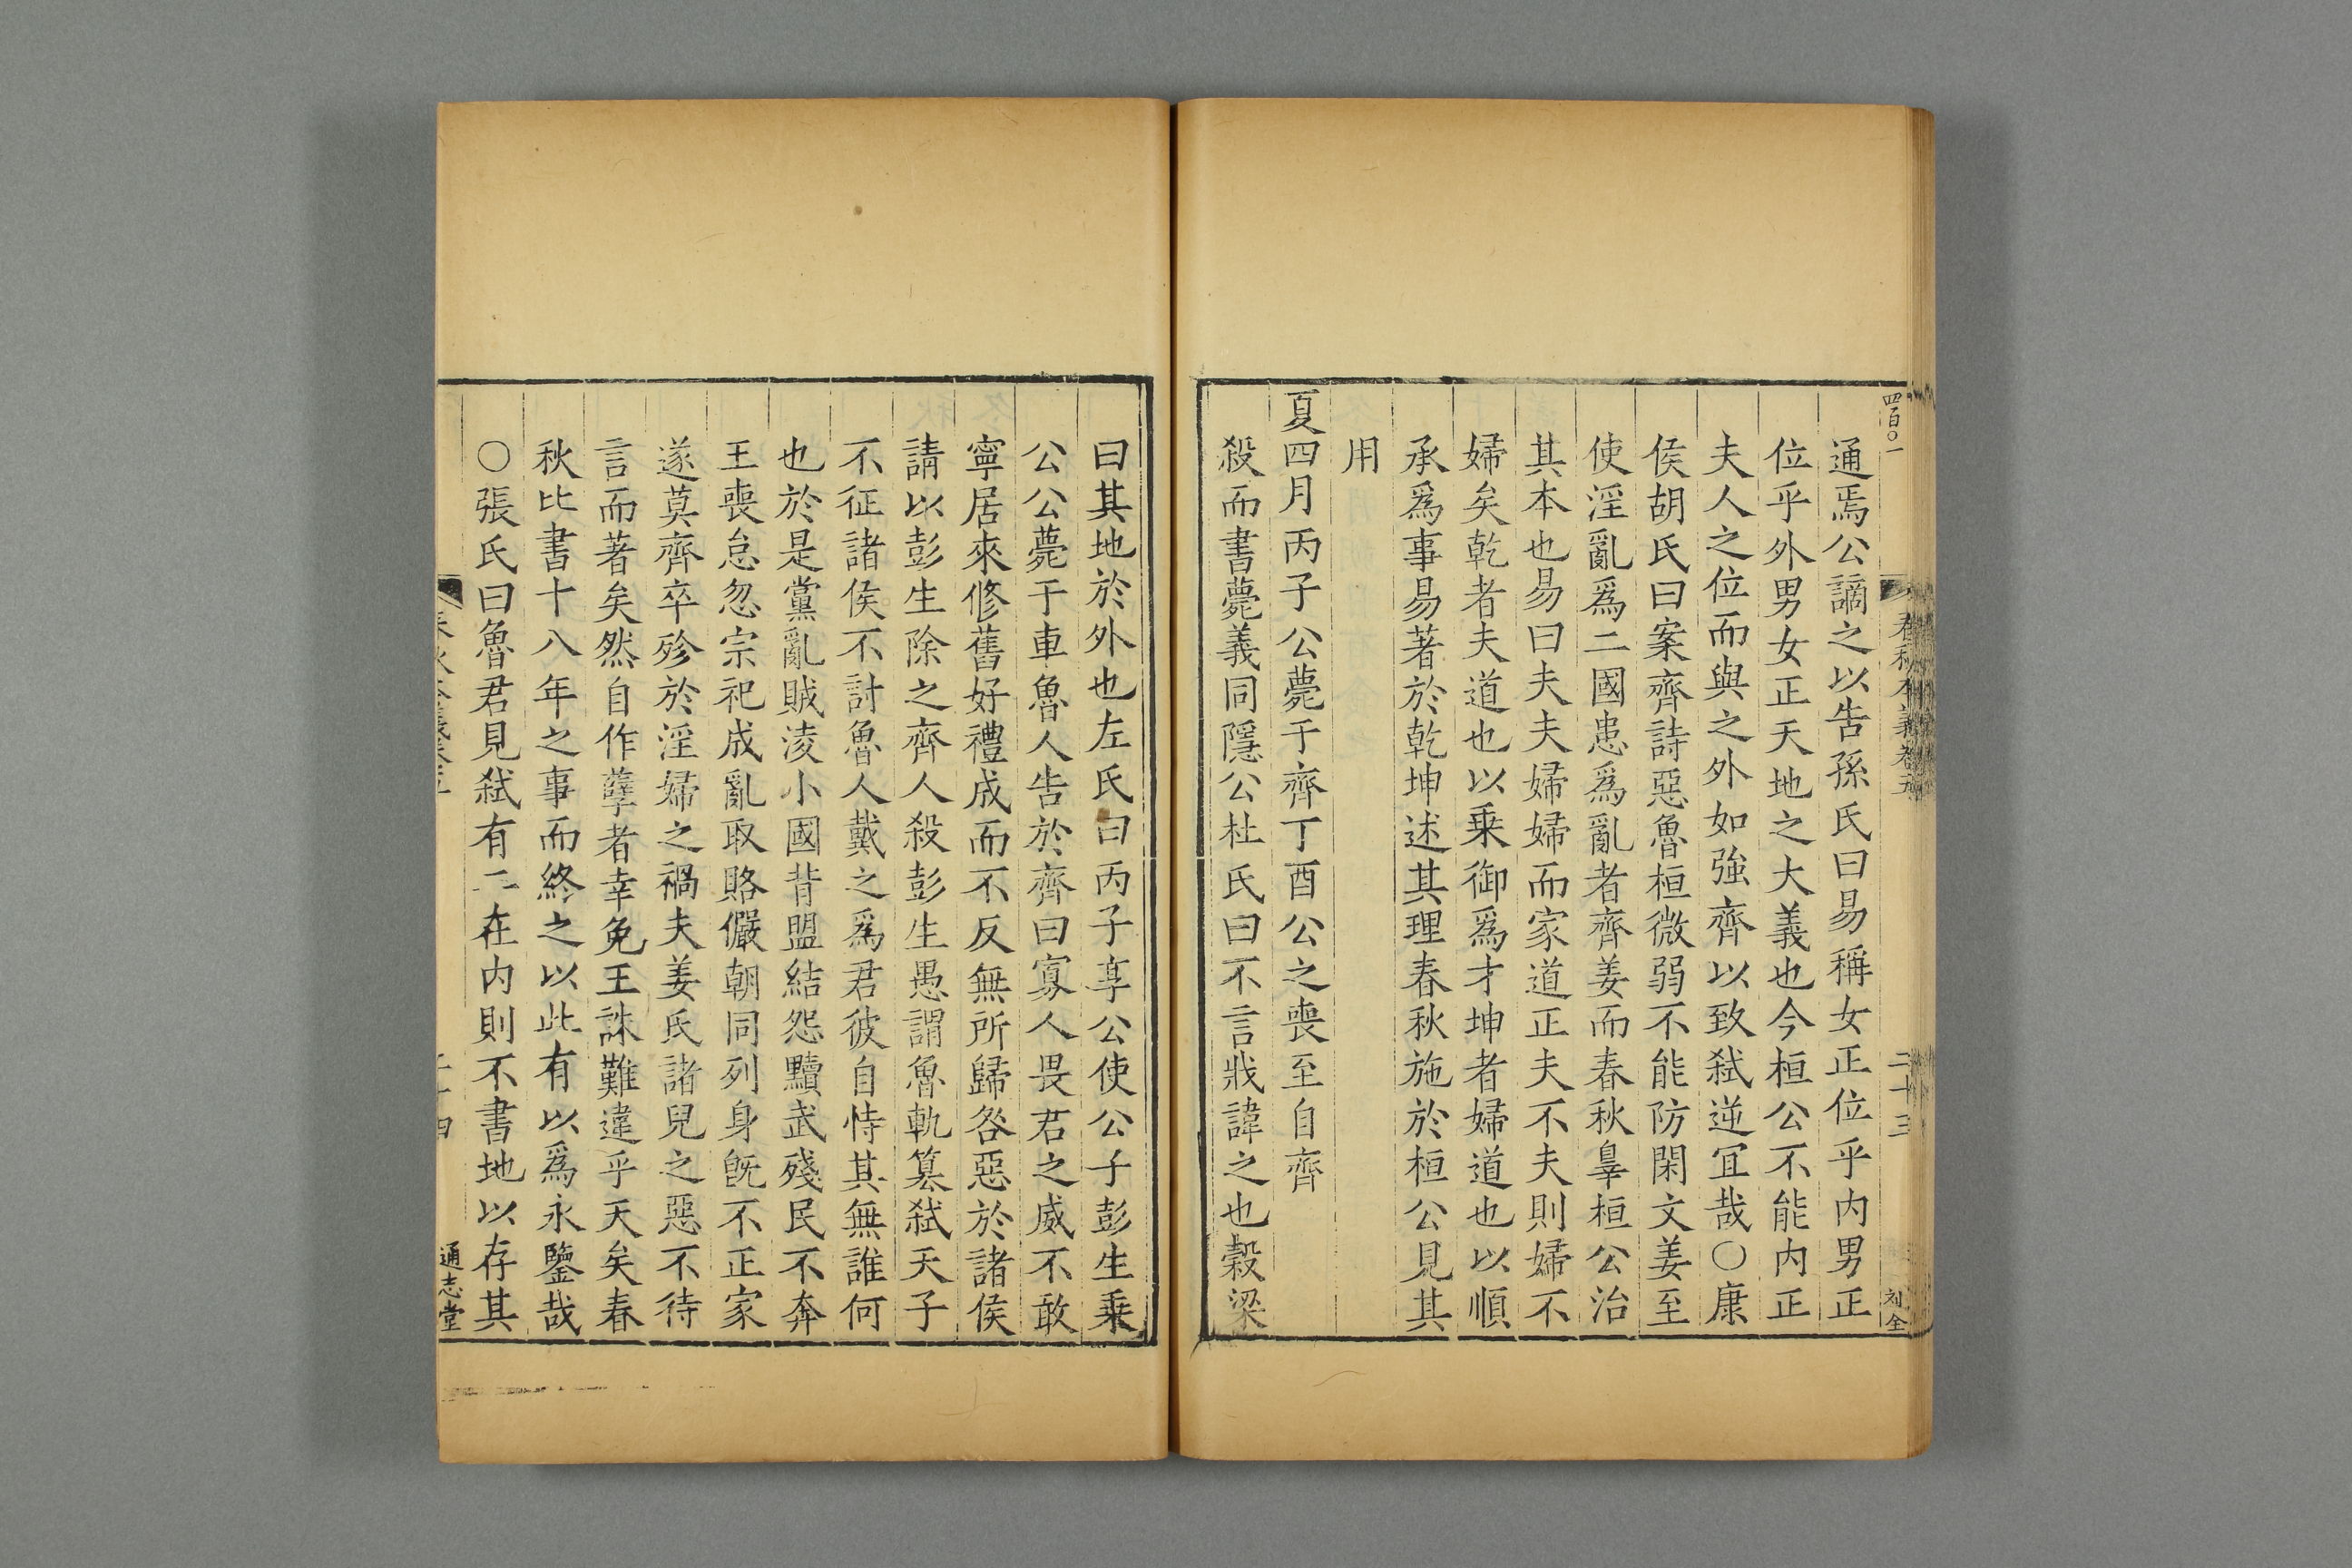 四百〇一
春秋本義卷五
二十三
通焉公謫之以告孫氏曰易稱女正位乎内男正
位乎外男女正天地之大義也今桓公不能内正
夫人之位而與之外如強齊以致弑逆冝哉〇康
侯胡氏曰案齊詩惡魯桓微弱不能防閑文姜至
使淫亂爲二國患爲亂者齊姜而春秋辠桓公治
其本也易曰夫夫婦婦而家道正夫不夫則婦不
婦矣乾者夫道也以乗御爲才坤者婦道也以順
承爲事易著於乾坤述其理春秋施於桓公見其
用
夏四月丙子公薨于齊丁酉公之喪至自齊
殺而書薨義同隱公杜氏曰不言戕諱之也榖梁
曰其地於外也左氏曰丙子享公使公子彭生乗
公公薨于車魯人告於齊曰寡人畏君之威不敢
寧居來修舊好禮成而不反無所歸咎惡於諸侯
請以彭生除之齊人殺彭生愚謂魯軌簒弑天子
不征諸侯不討魯人戴之爲君彼自恃其無誰何
也於是黨亂賊凌小國背盟結怨黷武殘民不奔
王喪怠忽宗祀成亂取賂儼朝同列身旣不正家
遂莫齊卒殄於淫婦之禍夫姜氏諸兒之惡不待
言而著矣然自作孽者幸免王誅難違乎天矣春
秋比書十八年之事而終之以此有以爲永鑒哉
〇張氏曰魯君見弑有二在内則不書地以存其
通志堂